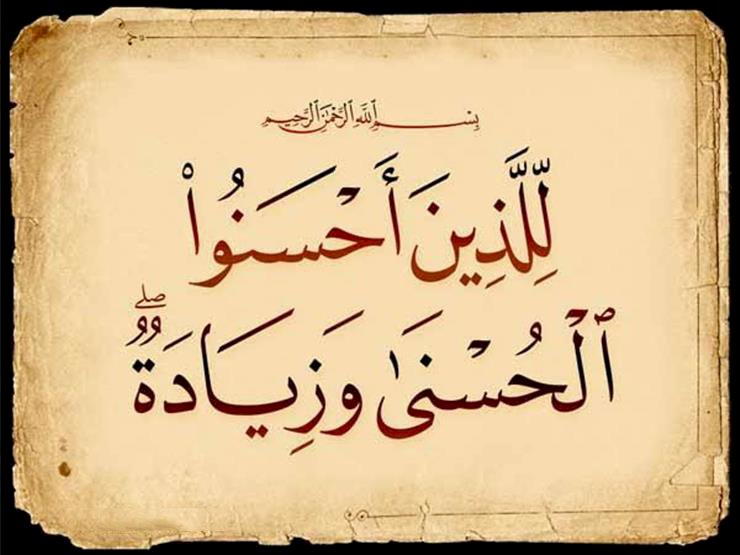 بِسْمِ ٱللَّهِ ٱلرَّحْمَٰنِ ٱلرَّحِيمِ
لِّلَّذِينَ أَحْسَنُوا۟
ٱلْحُسْنَىٰ وَزِيَادَةٌۭ ۖ